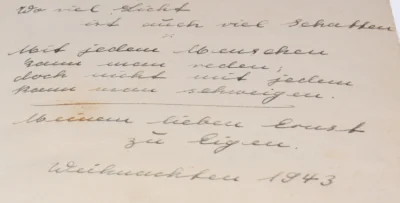 Wo viel Licht
ist auch viel Schatten
Mit jedem Menschen
kann man reden,
doch nicht mit jedem
kann man schweigen.
Meinem lieben Ernst
zu Eigen.
Weihnachten 1943